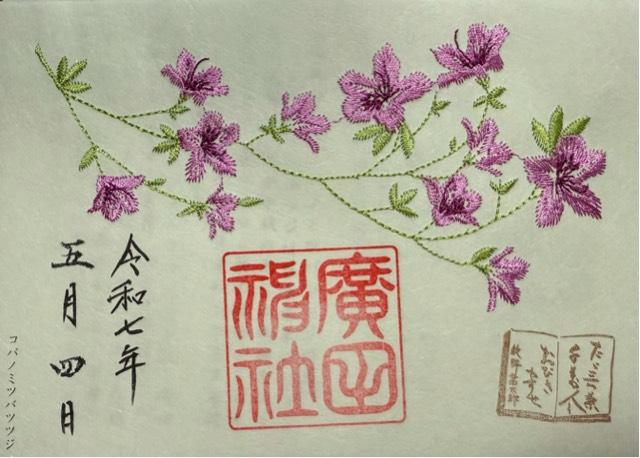 廣田
神社
令和七年
五月四日
コバノミツバツツジ
牧野富太郎